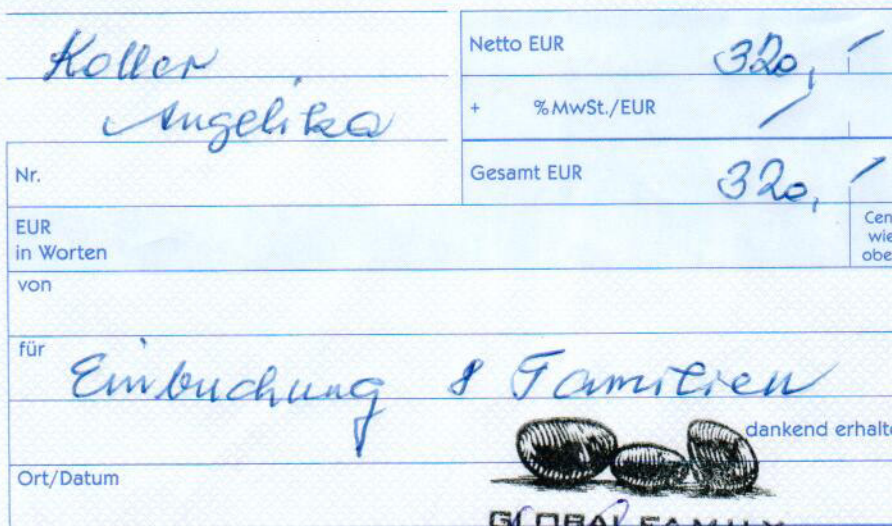 Koller
Angelika
Netto EUR 320,-
+ % MwSt./EUR /
Nr.
Gesamt EUR 320,-
EUR
in Worten
Cen
wie
obe
von
für Einbuchung 8 Familien
dankend erhalte
Ort/Datum
GLOBAL FAMILY